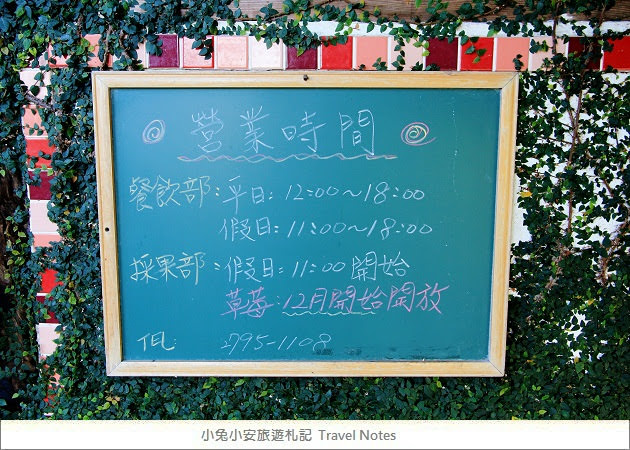 營業時間
餐飲部:平日:12:00~18:00
假日:11:00~18:00
採果部:假日:11:00開始
草莓:12月開始開放
TEL: 2795-1108
小兔小安旅遊札記 Travel Notes